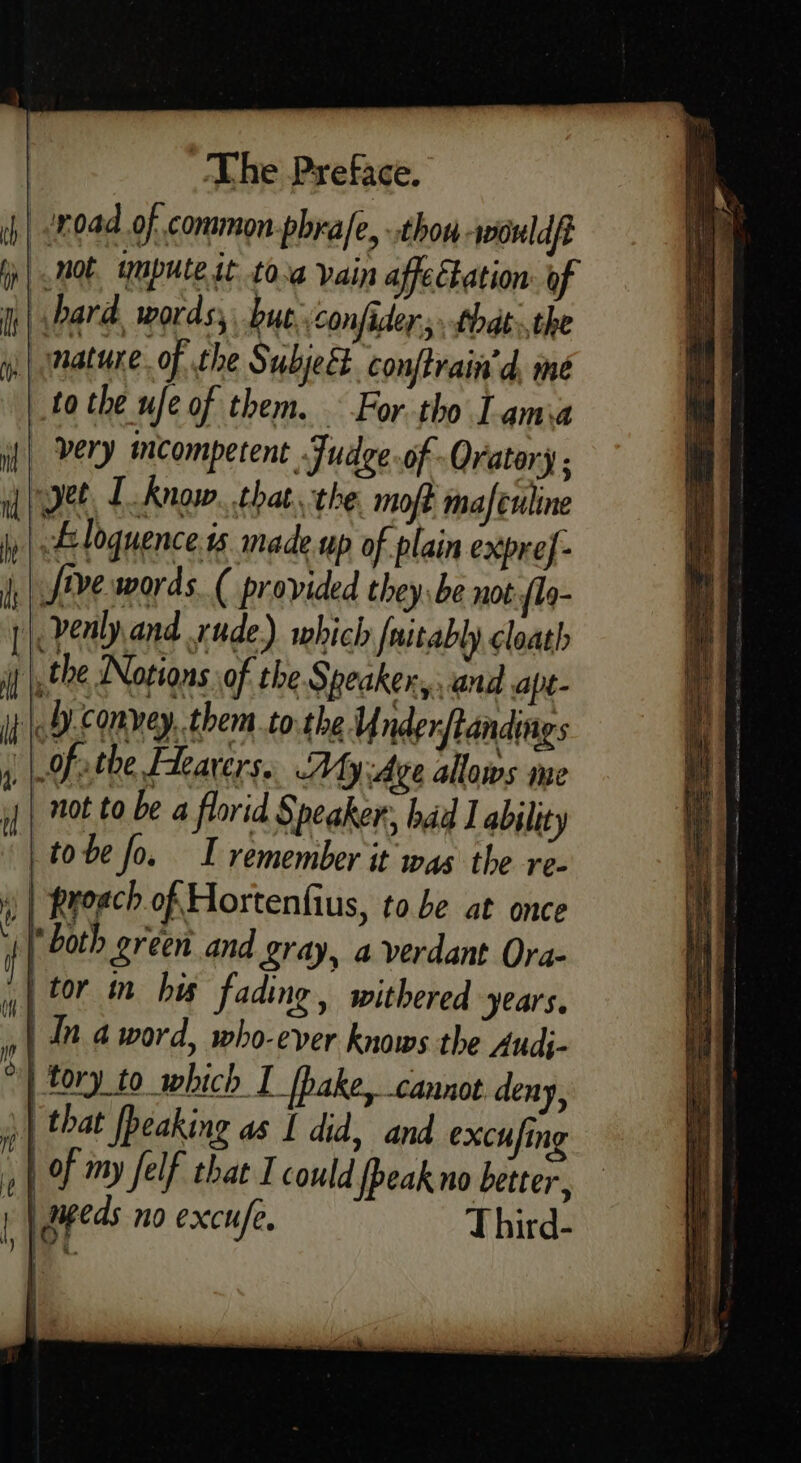 The Preface.
road of common phraſe, thou wouldſt
not impute it to a vain affectation of
hard words, but conſider, that the
nature of the Subject conſtrain'd me
to the uſe of them. For tho I am a
very incompetent Judge of Oratory;
yet I know that the moſt maſculine
Eloquence is made up of plain expreſ-
ſive words (provided they be not ſlo-
venly and rude) which ſuitably cloath
the Notions of the Speaker, and apt-
ly convey them to the Underſtandings
of the Hearers. My Age allows me
not to be a florid Speaker, had I ability
to be ſo. I remember it was the re-
proach of Hortenſius, to be at once
both green and gray, a verdant Ora-
tor in his fading, withered years.
In a word, who-ever knows the Audi-
tory to which I ſpake, cannot deny,
that ſpeaking as I did, and excuſing
of my ſelf that I could ſpeak no better,
needs no excuſe. Third-